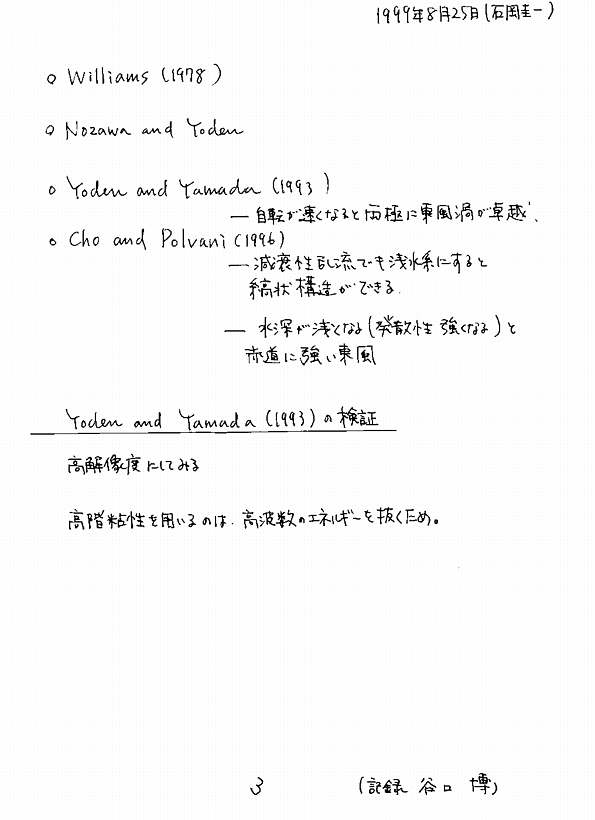 1999年8月25日(石岡圭一)
○ Williams (1978)
○ Nozawa and Yoden
○ Yoden and Yamada (1993)
— 自転が速くなると両極に東風渦が卓越、
○ Cho and Polvani (1996)
— 減衰性乱流でも浅水系にすると
縞状構造ができる.
— 水深が浅くなる(発散性強くなる)と
赤道に強い東風
Yoden and Yamada (1993) の検証
高解像度にしてみる
高階粘性を用いるのは、高波数のエネルギーを抜くため。
3 (記録 谷口 博)